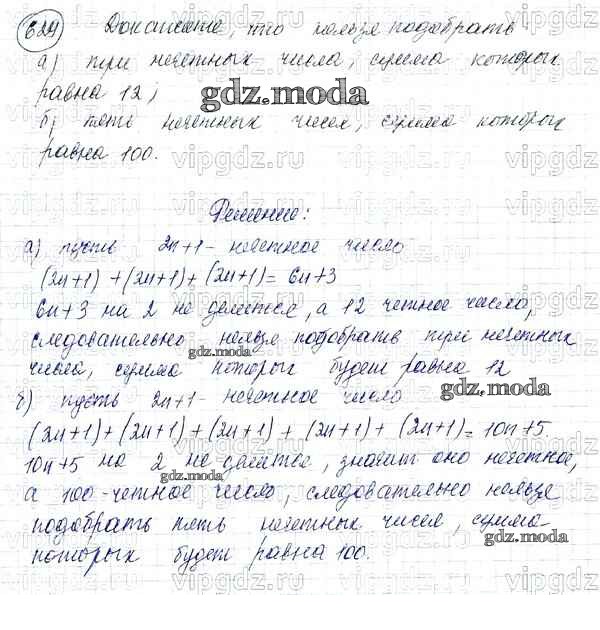 624 Докажите, что нельзя подобрать
а) три нечетных числа, сумма которых
равна 12;
gdz.moda
б) пять нечетных чисел, сумма которых
равна 100.
Решение:
а) пусть 2n+1 - нечетное число
(2n+1) + (2n+1) + (2n+1) = 6n+3
6n+3 на 2 не делится, а 12 четное число,
следовательно нельзя подобрать три нечетных
gdz.moda
числа, сумма которых будет равна 12
gdz.moda
б) пусть 2n+1 - нечетное число
(2n+1) + (2n+1) + (2n+1) + (2n+1) + (2n+1) = 10n+5.
10n+5 на 2 не делится, значит оно нечетное,
gdz.moda
а 100 - четное число, следовательно нельзя
подобрать пять нечетных чисел, сумма
которых будет равна 100.
gdz.moda
vipgdz.ru